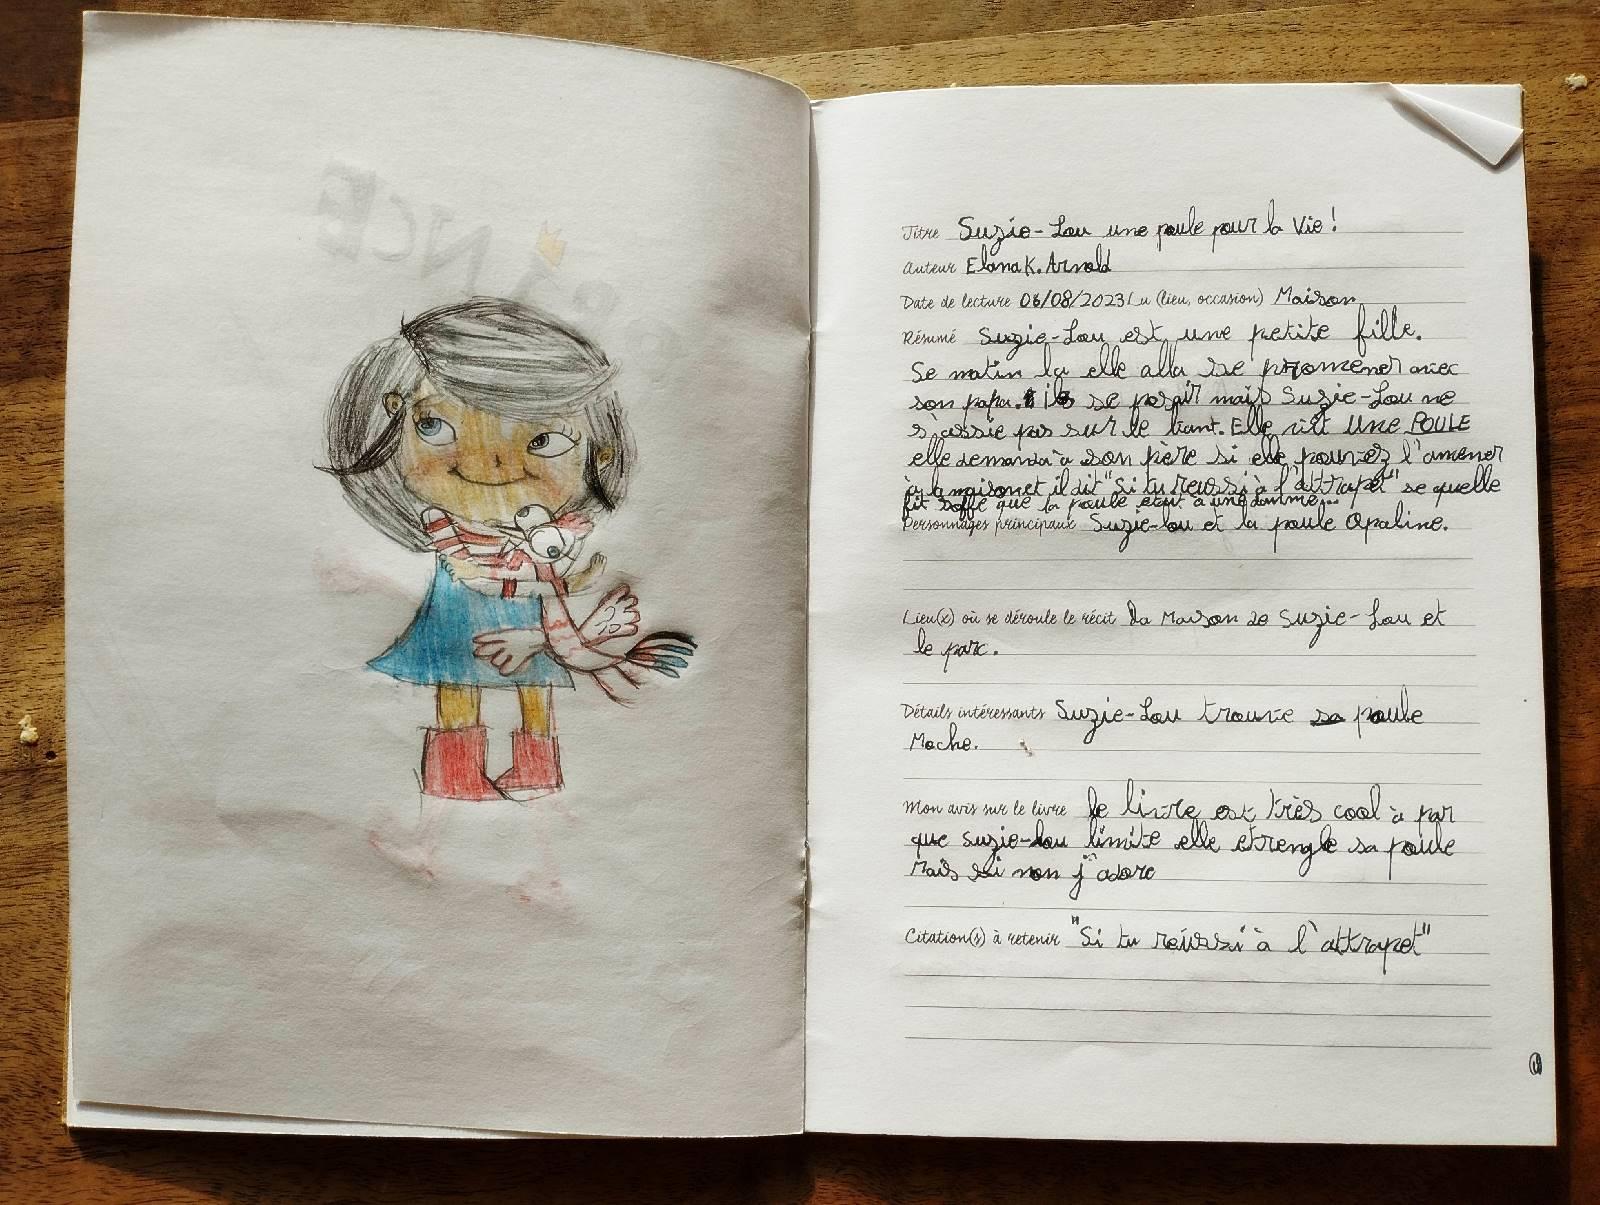 Titre Suzie-Lou une poule pour la Vie !
Auteur Elana K. Arnold
Date de lecture 06/08/2023 Lu (lieu, occasion) Maison
Résumé Suzie-Lou est une petite fille.
Se matin la elle alla se promener avec
son papa. ils se posair mais Suzie-Lou ne
s'assie pas sur le bant. Elle vit UNE POULE
elle demanda à son père si elle pouvez l'amener
à la maison et il dit "Si tu reussi à l'attrapet" se quelle
fit soffe que la poule etait à une damme...
Personnages principaux Suzie-lou et la poule Opaline.
Lieu(x) où se déroule le récit La Maison de Suzie-Lou et
le parc.
Détails intéressants Suzie-Lou trouve sa poule
Moche.
Mon avis sur le livre le livre est très cool à par
que Suzie-Lou limite elle etrengle sa poule
Mais si non j'adore
Citation(s) à retenir "Si tu réussi à l'attrapet"